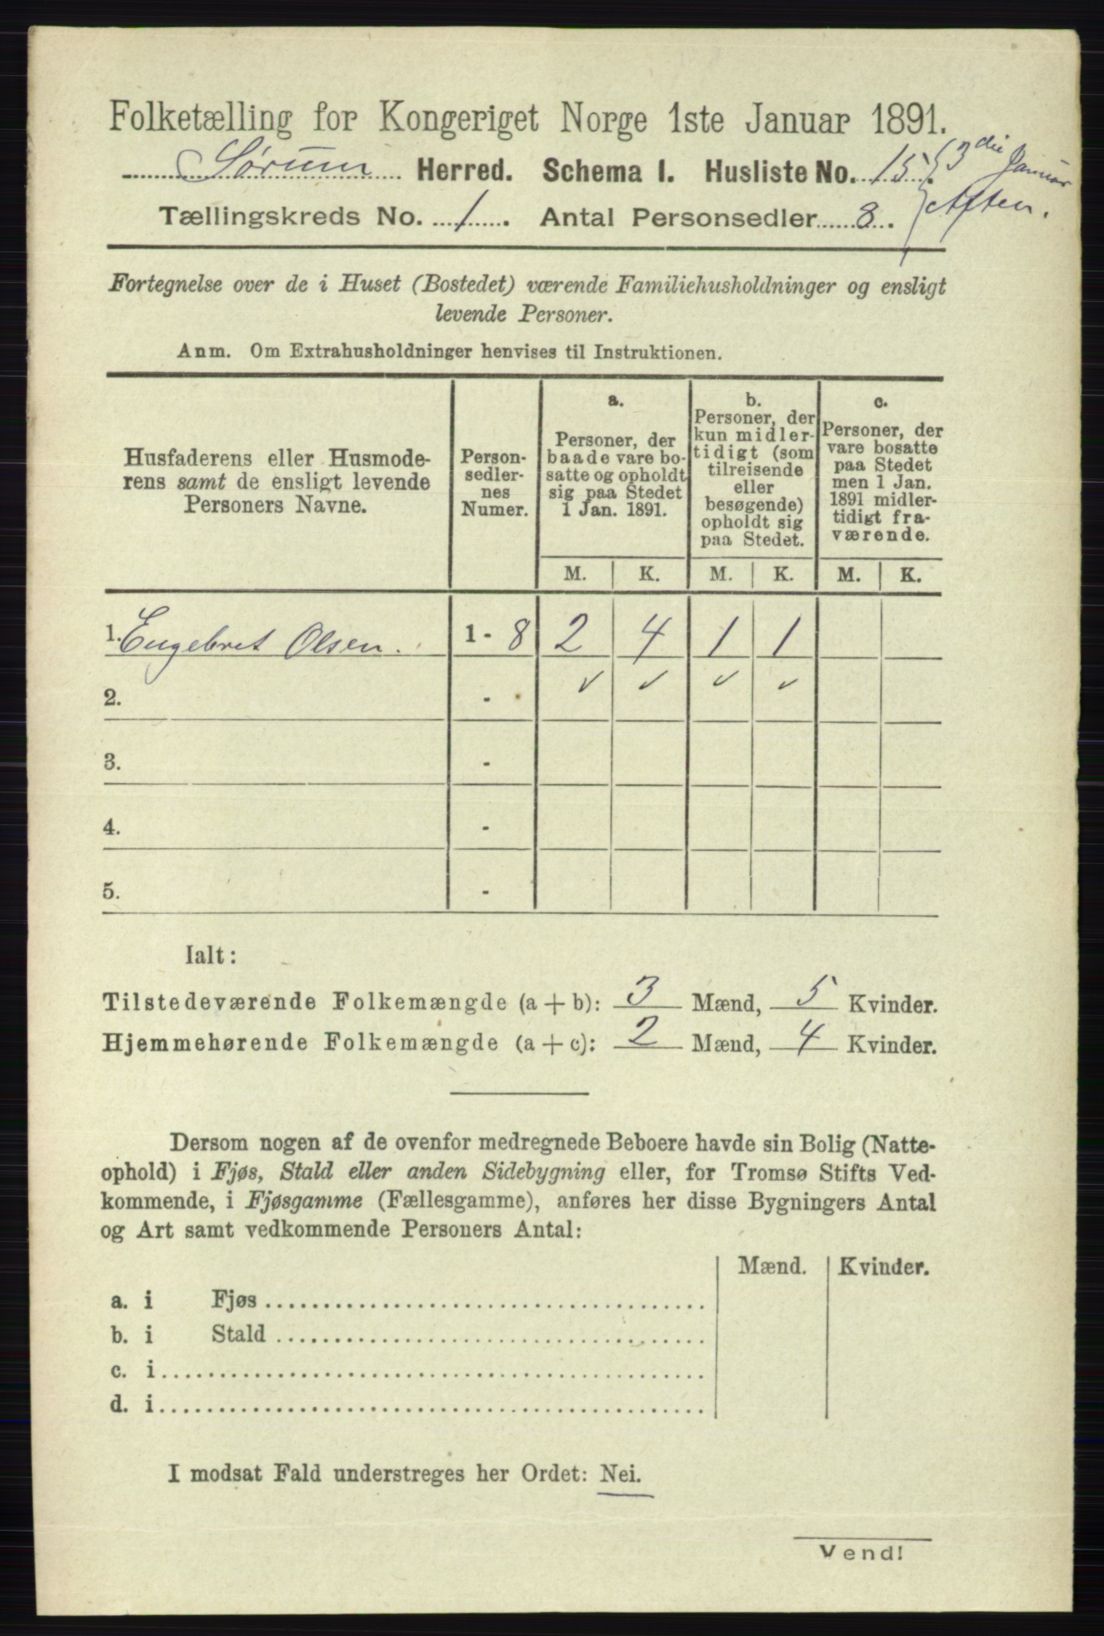 Folketælling for Kongeriget Norge 1ste Januar 1891.
Sørum Herred. Schema I. Husliste No. 15. { 3die Januar
Tællingskreds No. 1. Antal Personsedler 8. Aften.
Fortegnelse over de i Huset (Bostedet) værende Familiehusholdninger og ensligt
levende Personer.
Anm. Om Extrahusholdninger henvises til Instruktionen.
Husfaderens eller Husmode-
rens samt de ensligt levende
Personers Navne.
Person-
sedler-
nes
Numer.
a.
Personer, der
baade vare bo-
satte og opholdt
sig paa Stedet
1 Jan. 1891.
b.
Personer, der
kun midler-
tidigt (som
tilreisende
eller
besøgende)
opholdt sig
paa Stedet.
c.
Personer, der
vare bosatte
paa Stedet
men 1 Jan.
1891 midler-
tidigt fra-
værende.
M. K. M. K. M. K.
1. Engebret Olsen. 1 - 8 2 4 1 1
2. - ✓ ✓ ✓ ✓
3. -
4. -
5. -
Ialt:
Tilstedeværende Folkemængde (a + b): 3 Mænd, 5 Kvinder.
Hjemmehørende Folkemængde (a + c): 2 Mænd, 4 Kvinder.
Dersom nogen af de ovenfor medregnede Beboere havde sin Bolig (Natte-
ophold) i Fjøs, Stald eller anden Sidebygning eller, for Tromsø Stifts Ved-
kommende, i Fjøsgamme (Fællesgamme), anføres her disse Bygningers Antal
og Art samt vedkommende Personers Antal:
Mænd. Kvinder.
a. i Fjøs
b. i Stald
c. i
d. i
I modsat Fald understreges her Ordet: Nei.
Vend!